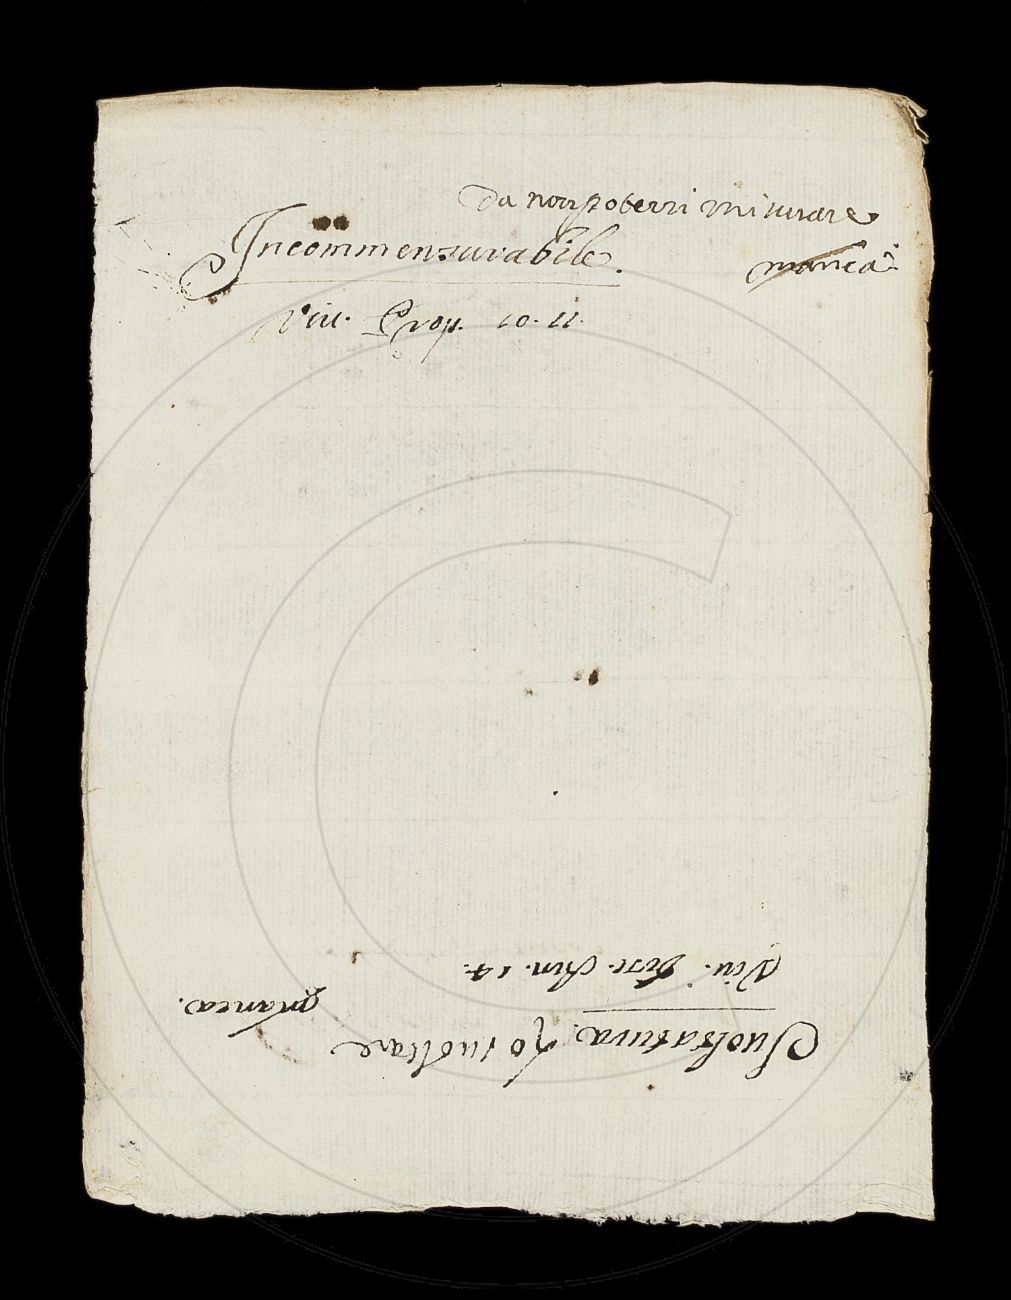 da non poterri misurare
Incommensurabile.
manca
Viu. Prop. 10. 11.
Suoltatura. Lo suoltare
manca.
Viu. Diſt. Arn. 14.